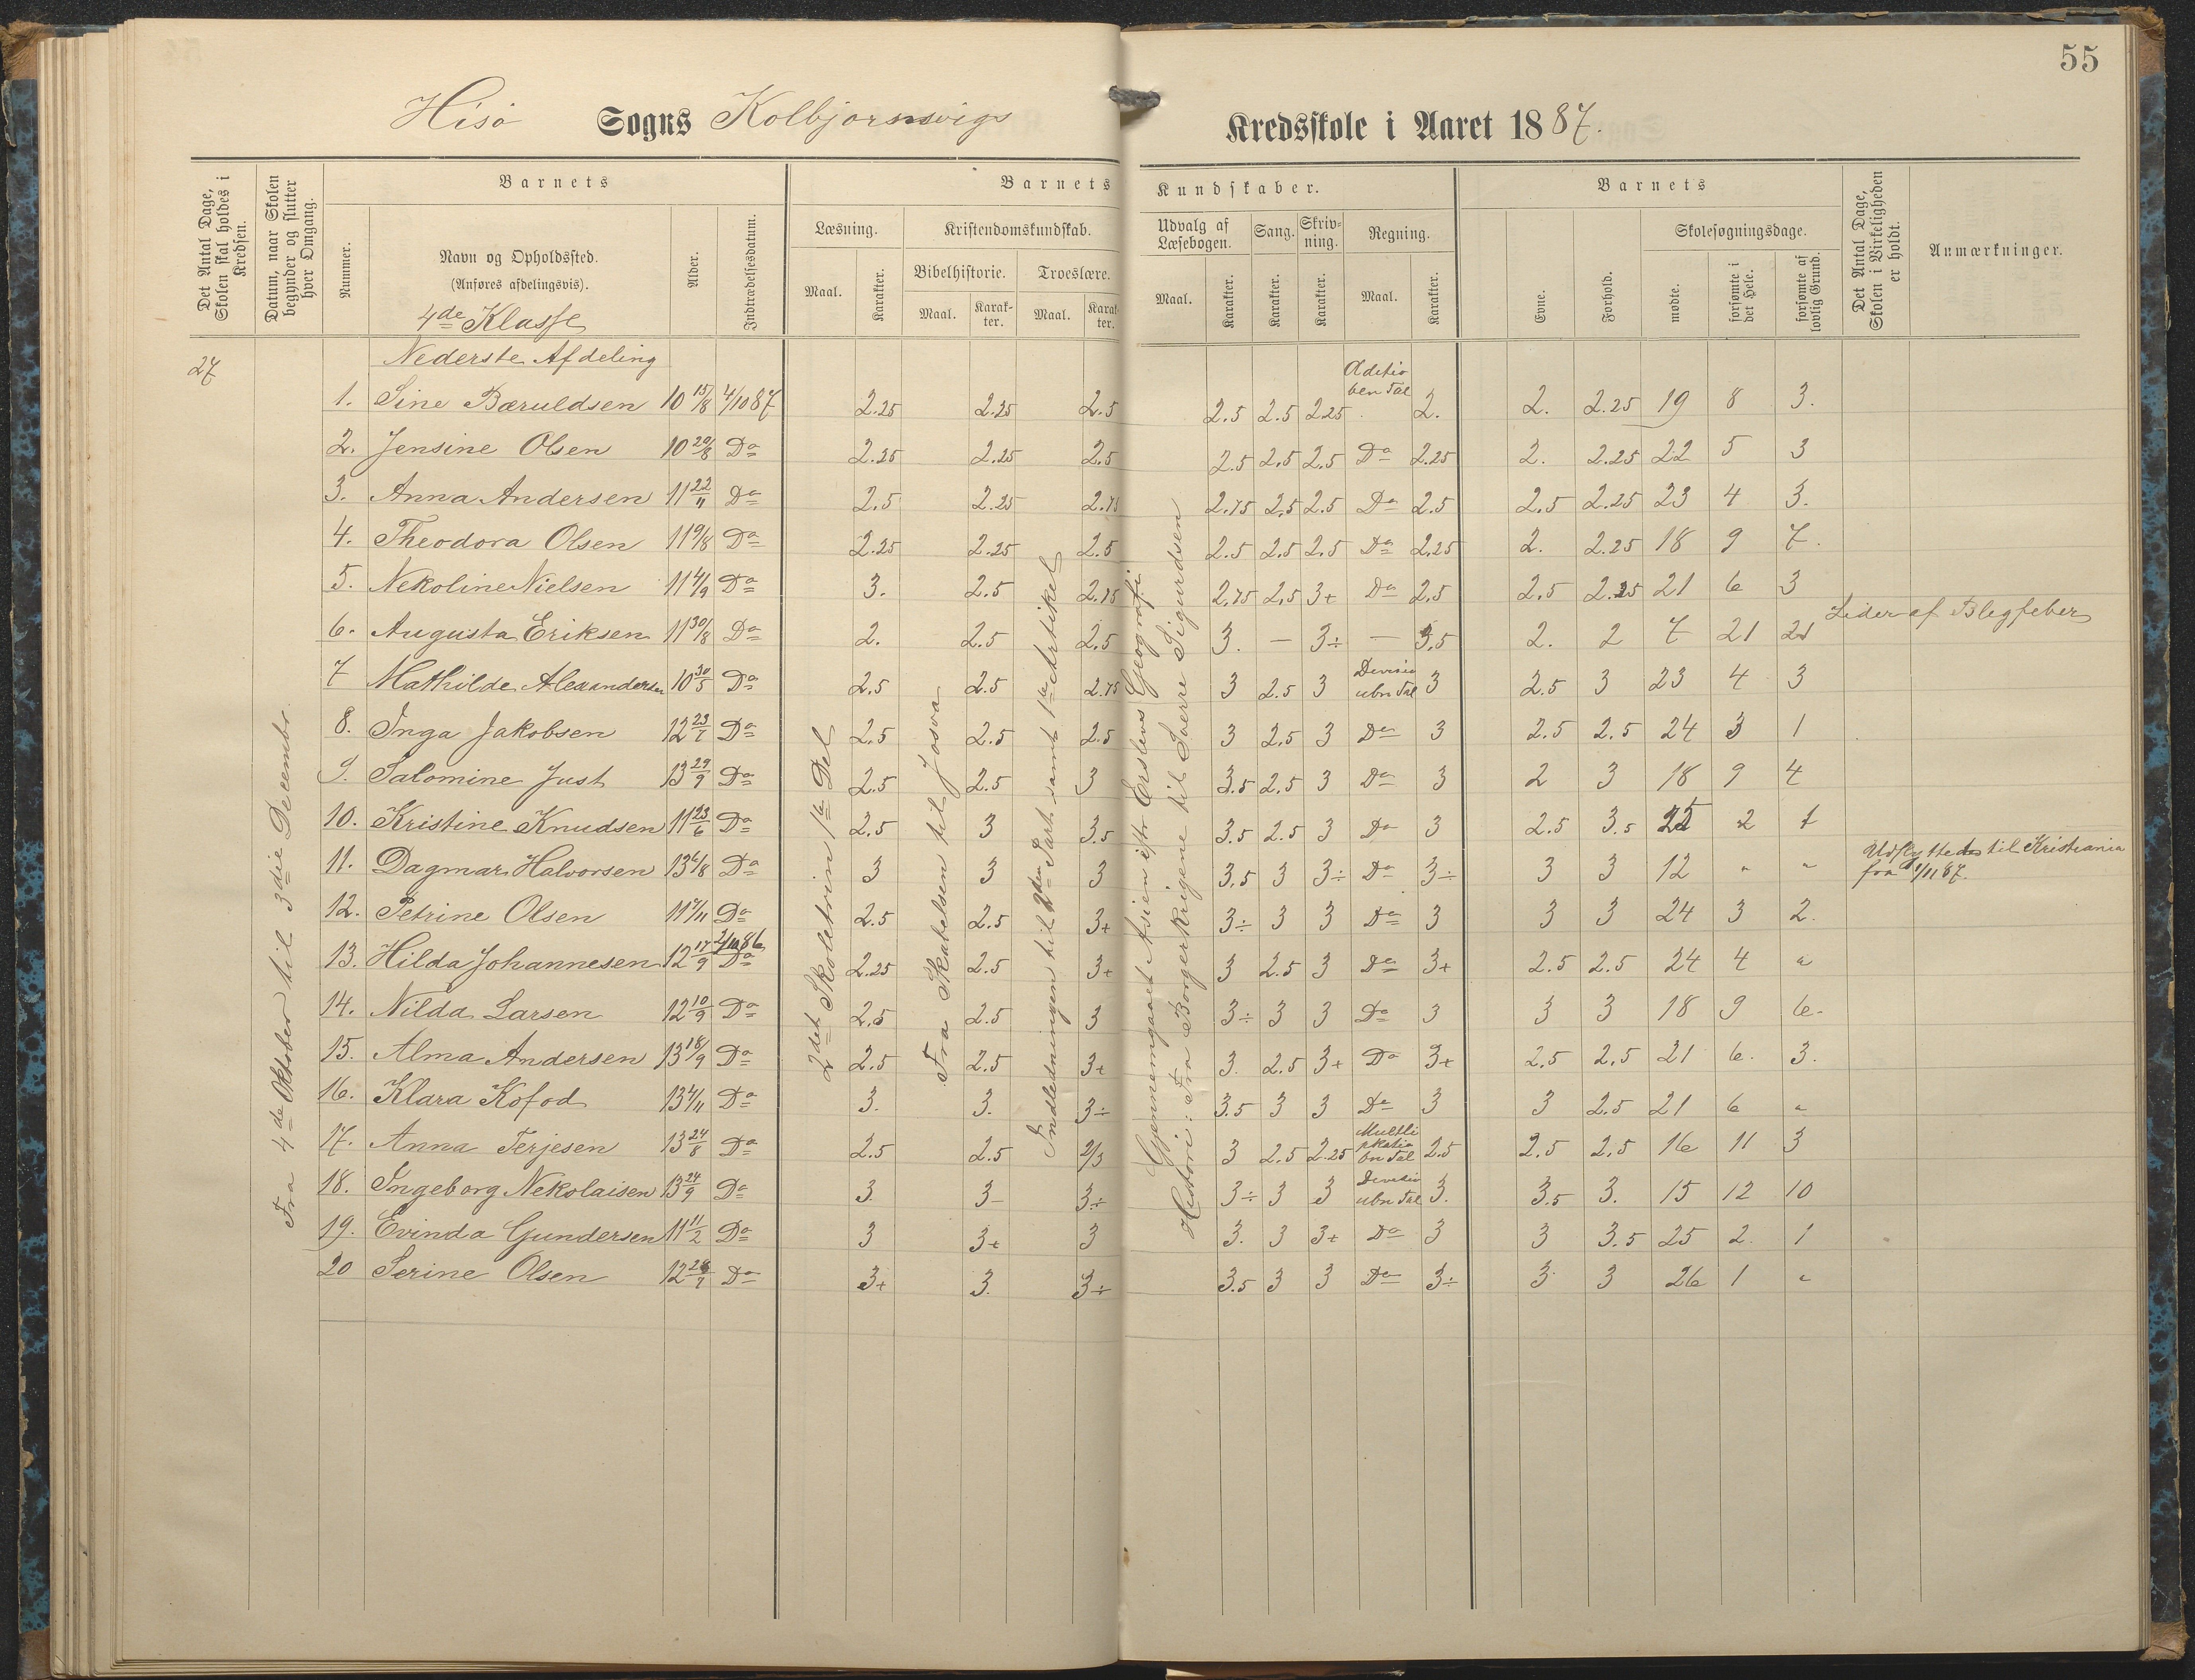 55
Hisø Sogns Kolbjørnsvigs Kredsskole i Aaret 1887.
Det Antal Dage, Skolen skal holdes i Kredsen.
Datum, naar Skolen begynder og slutter hver Omgang.
Barnets
Nummer.
Navn og Opholdssted.
(Anføres afdelingsvis).
Alder.
Indtrædelsesdatum.
Barnets Kundskaber.
Læsning.
Maal.
Karakter.
Kristendomskundskab.
Bibelhistorie.
Maal.
Karakter.
Troeslære.
Maal.
Karakter.
Udvalg af Læsebogen.
Maal.
Karakter.
Sang.
Karakter.
Skrivning.
Karakter.
Regning.
Maal.
Karakter.
Barnets
Evne.
Forhold.
Skolesøgningsdage.
mødte.
forsømte i det Hele.
forsømte af lovlig Grund.
Det Antal Dage, Skolen i Virkeligheden er holdt.
Anmærkninger.
4de Klasse
Nederste Afdeling
27
Fra 4de Oktober til 3die Decembr.
2det Skoletrin 1ste Del
Fra Skabelsen til Josva
Indledningen til 2den Part samt 1ste Artikel
Gjennemgaaet Asien efter Erslevs Geografi
Histori: Fra Borgerkrigene til Sverre Sigurdsen
1. Sine Bæruldsen 10 15/8 4/10 87 2.25 2.25 2.5 2.5 2.5 2.25 Aditio ben Tal 2. 2. 2.25 19 8 3.
2. Jensine Olsen 10 20/8 Do 2.25 2.25 2.5 2.5 2.5 2.5 Do 2.25 2. 2.25 22 5 3
3. Anna Andersen 11 22/11 Do 2.5 2.25 2.75 2.75 2.5 2.5 Do 2.5 2.5 2.25 23 4 3.
4. Theodora Olsen 11 9/8 Do 2.25 2.25 2.5 2.5 2.5 2.5 Do 2.25 2. 2.25 18 9 7.
5. Nekoline Nielsen 11 4/9 Do 3. 2.5 2.75 2.75 2.5 3+ Do 2.5 2.5 2.25 21 6 3
6. Augusta Eriksen 11 30/8 Do 2. 2.5 2.5 3. — 3÷ — 3.5 2. 2 7 21 21 Lider af Blegfeber
7 Mathilde Alexandersen 10 30/5 Do 2.5 2.5 2.75 3 2.5 3 Divisio ubn Tal 3 2.5 3 23 4 3
8. Inga Jakobsen 12 23/1 Do 2.5 2.5 2.5 3 2.5 3 Do 3 2.5 2.5 24 3 1
9. Salomine Just 13 29/9 Do 2.5 2.5 3 3.5 2.5 3 Do 3 2 3 18 9 4
10. Kristine Knudsen 11 23/6 Do 2.5 3 3.5 3.5 2.5 3 Do 3 2.5 3.5 25 2 1
11. Dagmar Halvorsen 13 6/8 Do 3 3 3 3.5 3 3÷ Do 3÷ 3 3 12 " " Udflyttedes til Kristiania fra 1/11 87.
12. Petrine Olsen 11 7/11 Do 2.5 2.5 3+ 3÷ 3 3 Do 3 3 3 24 3 2.
13. Hilda Johannesen 12 17/9 2/10 86 Do 2.25 2.5 3+ 3 2.5 3 Do 3+ 2.5 2.5 24 4 "
14. Nilda Larsen 12 10/9 Do 2.5 2.5 3 3÷ 3 3 Do 3 3 3 18 9 6.
15. Alma Andersen 13 18/9 Do 2.5 2.5 3+ 3. 2.5 3+ Do 3+ 2.5 2.5 21 6. 3.
16. Klara Kofod 13 4/11 Do 3. 3. 3÷ 3.5 3 3 Do 3 3 2.5 21 6 "
17. Anna Terjesen 13 24/8 Do 2.5 2.5 2/3 3 2.5 2.25 Multi pkatio bn Tal 2.5 2.5 2.5 16 11 3
18. Ingeborg Nekolaisen 13 24/9 Do 3. 3- 3÷ 3÷ 3 3 Divisio ubn Tal 3. 3.5 3. 15 12 10
19. Evinda Gundersen 11 11/2 Do 3 3+ 3 3. 3 3+ Do 3 3 3.5 25 2. 1
20 Serine Olsen 12 28/7 Do 3+ 3. 3÷ 3.5 3 3 Do 3÷ 3 3 26 1 "